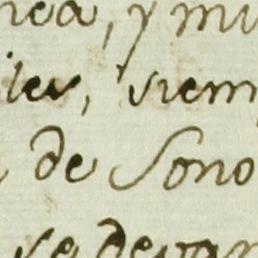 , y mu
les, siem
de Sono
se devan